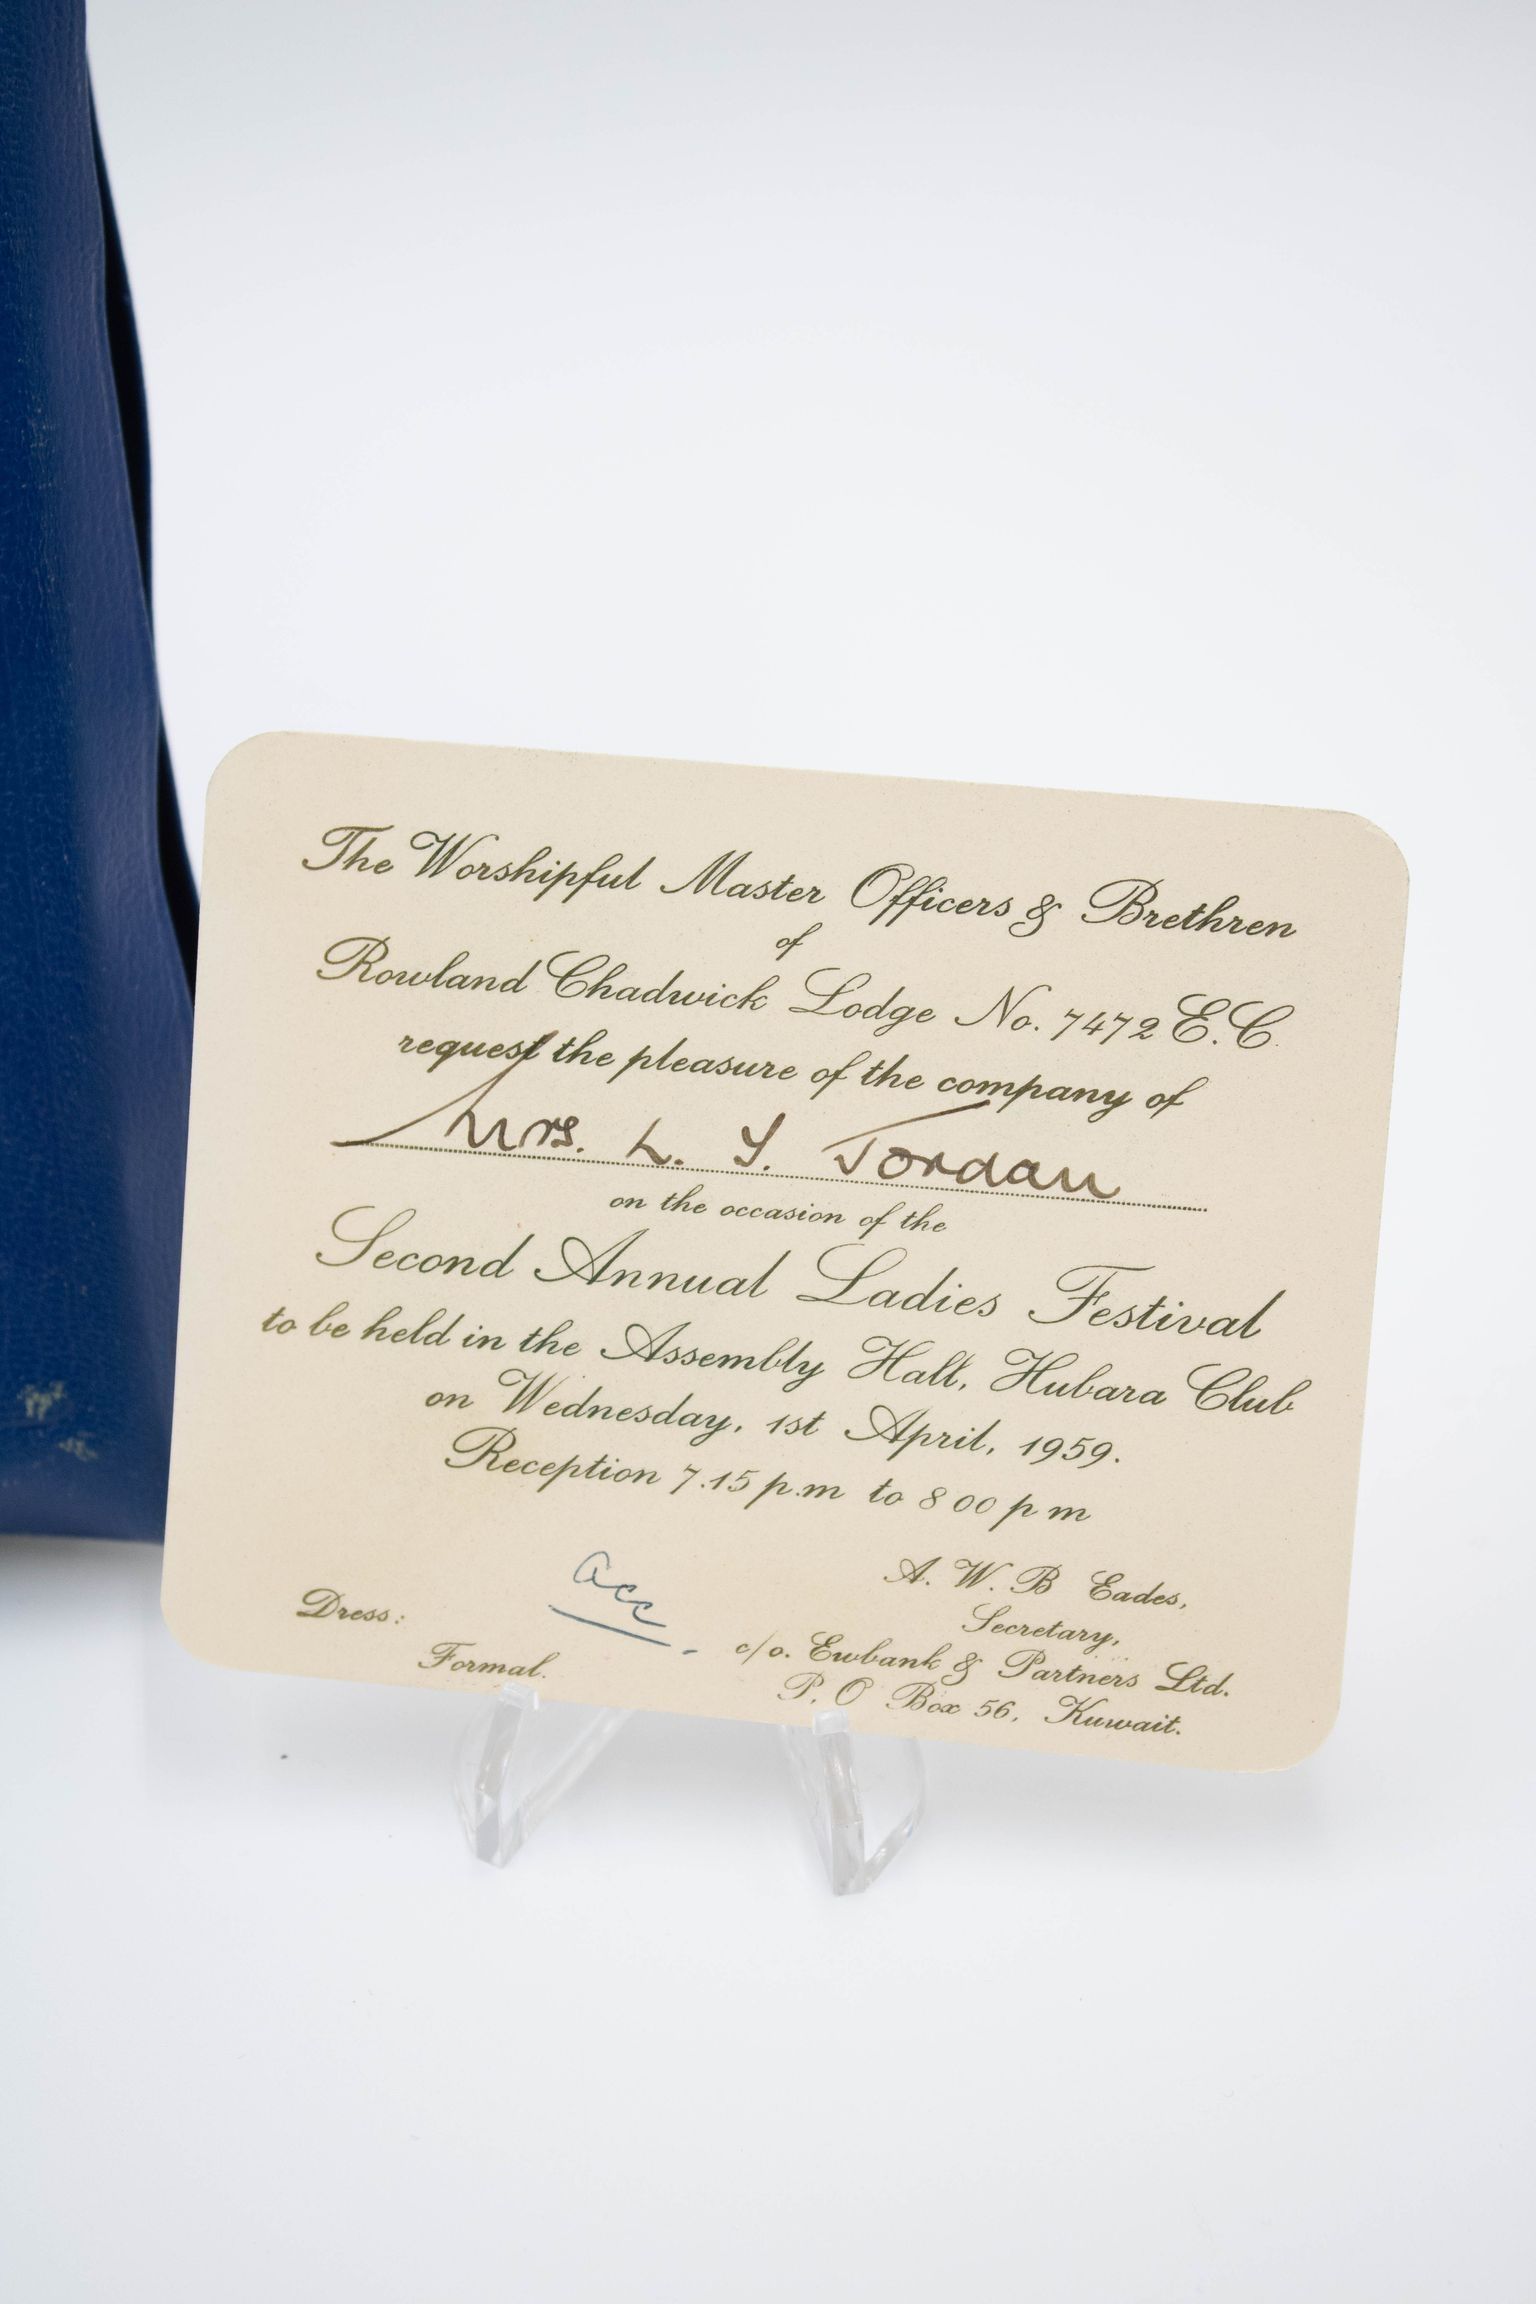 The Worshipful Master Officers & Brethren
of
Rowland Chadwick Lodge No. 7472 E.C.
request the pleasure of the company of
Mrs. L. Y. Jordan
on the occasion of the
Second Annual Ladies Festival
to be held in the Assembly Hall, Hubara Club
on Wednesday, 1st April, 1959.
Reception 7.15 p.m to 8 00 p m
acc
Dress:
Formal.
A. W. B Eades,
Secretary,
c/o. Ewbank & Partners Ltd.
P. O Box 56, Kuwait.